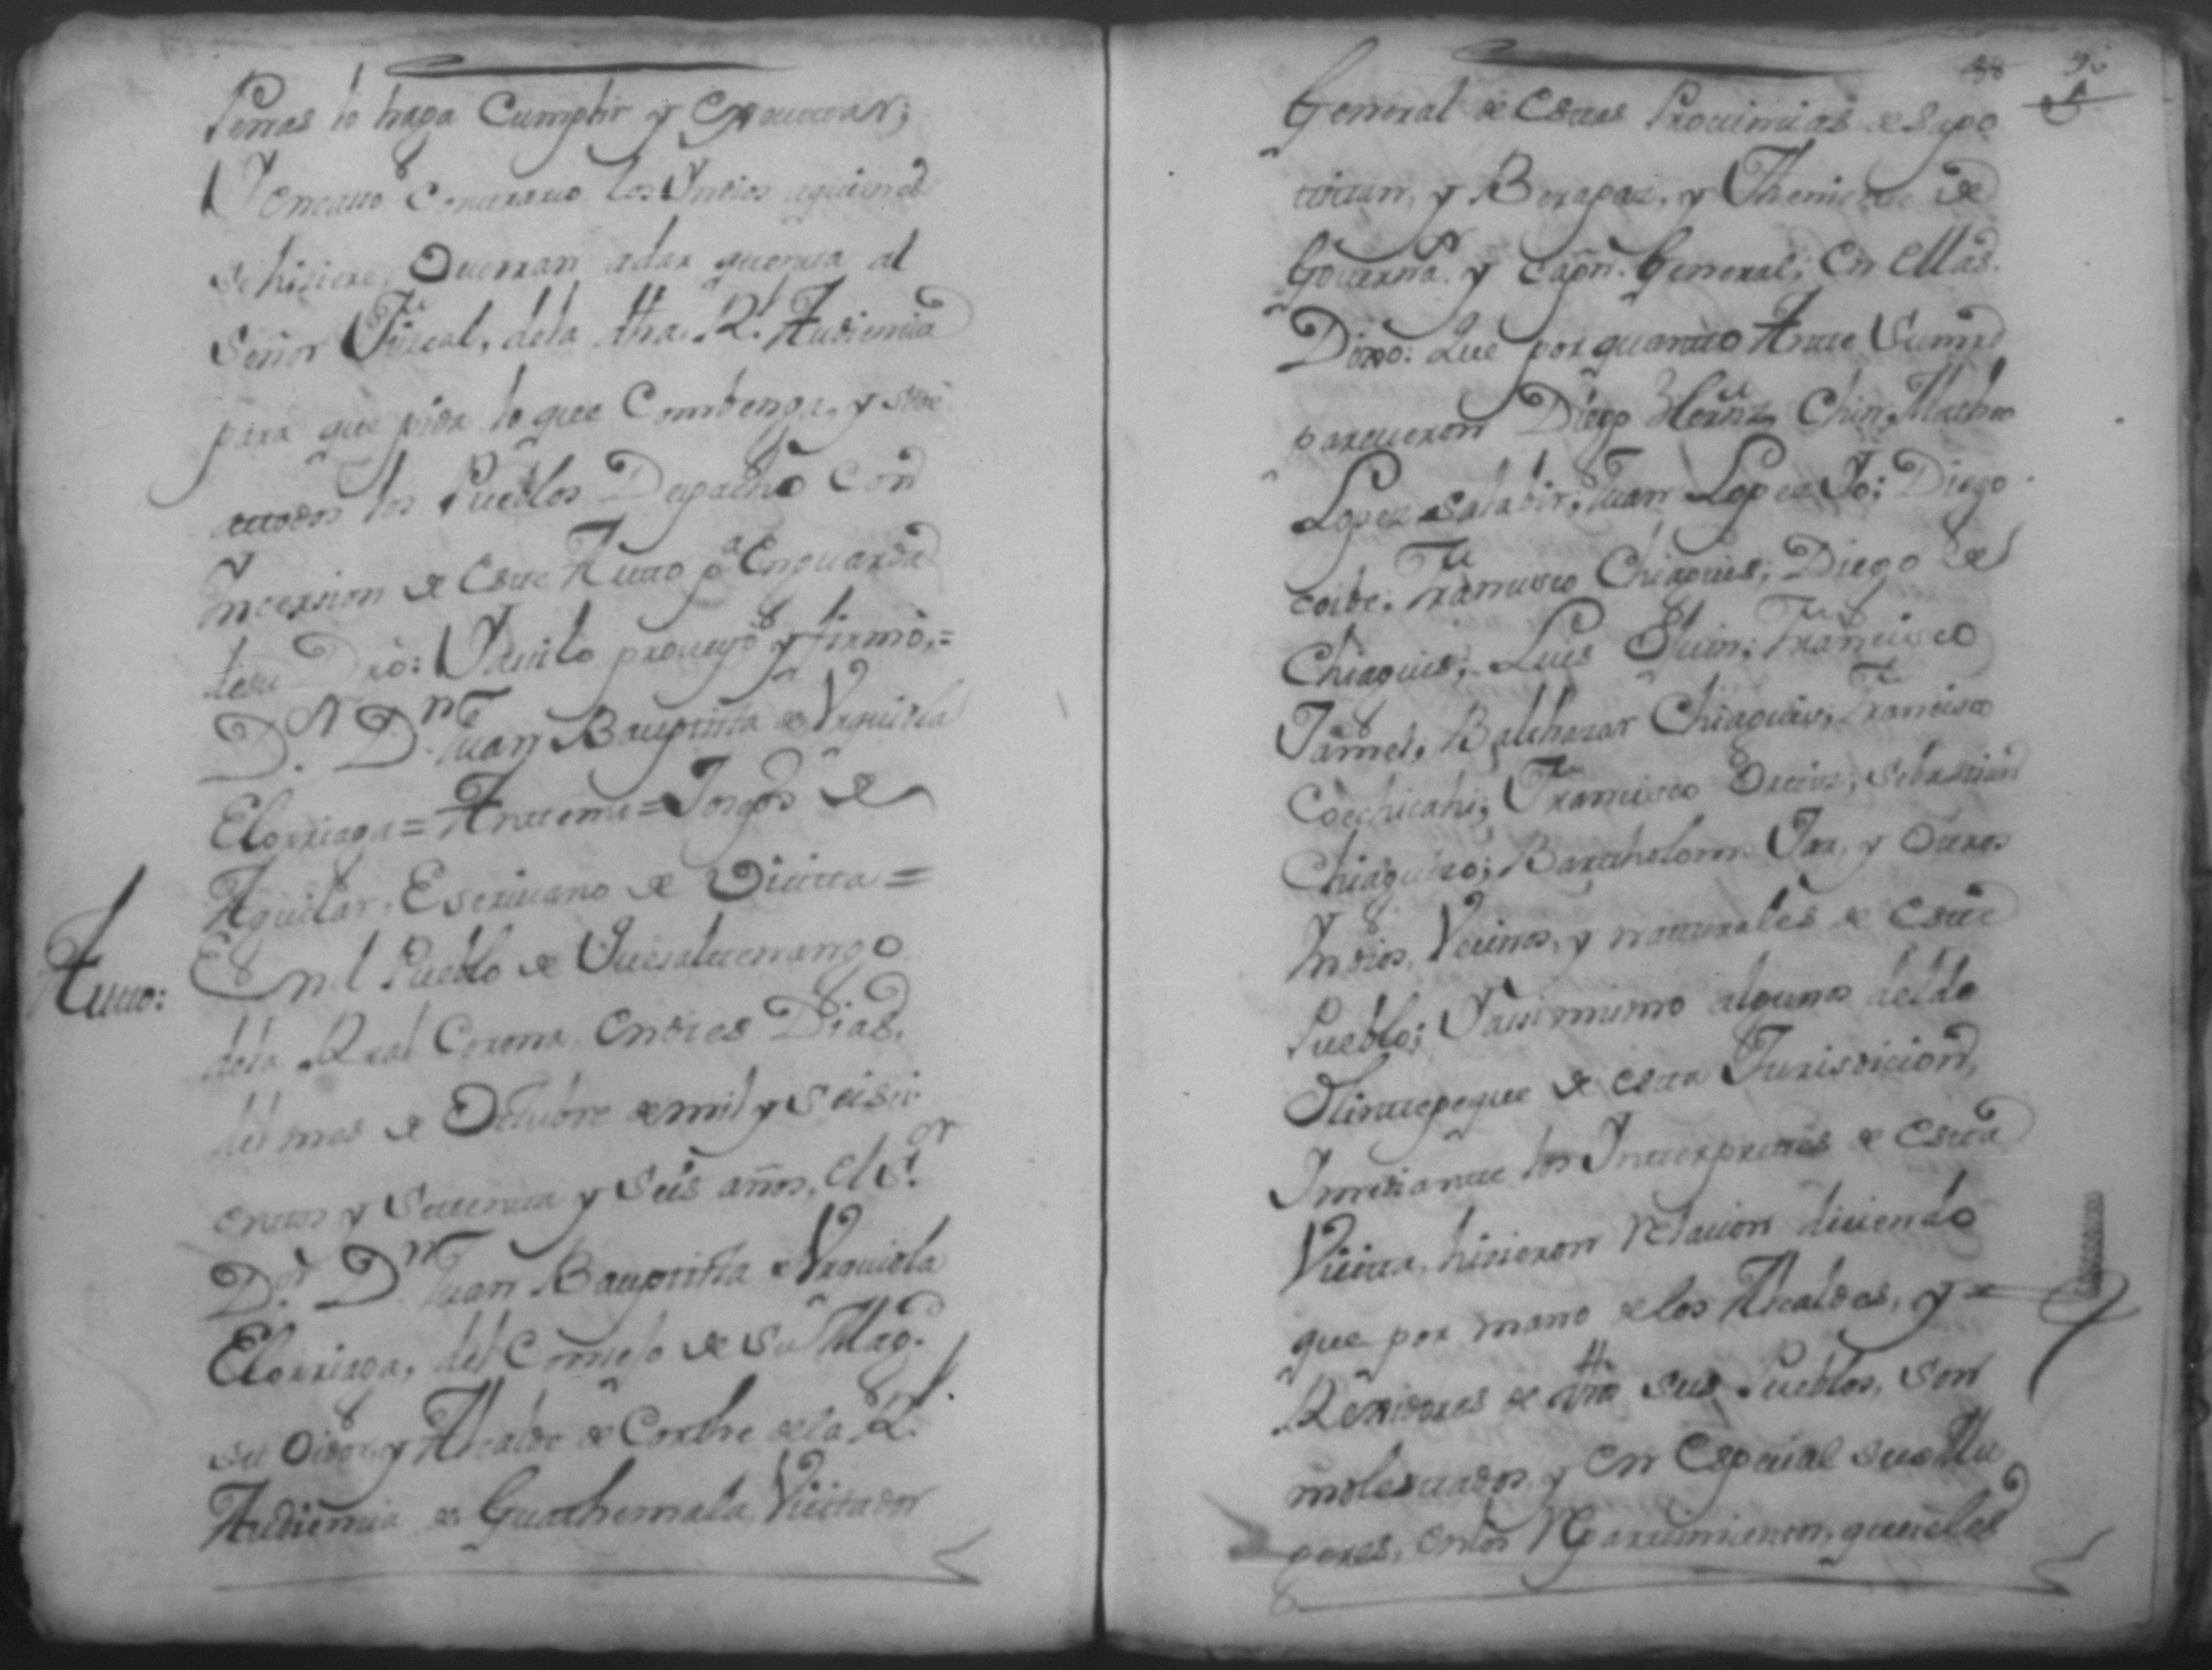 Penas lo haga Cumplir y Executar;
Y en caso Contrario los Yndios aquienes
se hiziere, Ocurran a dar quenta al
Señor Fiscal, dela dha. Rl. Audiencia
para que pida lo que Combenga, y sede
atodos los Pueblos Despacho Con
Yncersion de Este Auto pa. Enguarda
desu Dro: Y assilo proveyo y firmò,=
Dor. Dn. Juan Bauptista de Vrquiola
Elorriaga = Antemi = Jorge de
Aguilar, Escrivano de Vicita =
Auto:
En el Pueblo de Quesaltenango
dela Real Corona, en dies Dias,
del mes de Octubre de mil y seisci
entos y setenta y seis años, el Sor.
Dor. Dn. Juan Bauptista de Vrquiola
Elorriaga, del Consejo de Su Magd.
su Oidor, y Alcalde de Corthe de la Rl.
Audiencia de Guathemala, Vicitador
General de Estas Provincias de Sapo
titan, y Berapaz, y Theniente de
Governr. y Capn. General, en Ellas.
Dixo: Que por quanto Ante Sumrd
parecieron Diego Hernz Chin, Matheo
Lopez Salabir, Juan Lopez Yo; Diego
coide, Francisco Chiaquis, Diego de
Chiaquis, Luis Quin, Francisco
Jamel, Balthazar Chiaquis, Francisco
Coechicahi, Francisco Ortiz, Sebastian
Bartholome Jax, y Otros
Yndios, Vecinos, y naturales de Este
Pueblo; Y assimismo algunos del de
Olintepeque de esta Jurisdicion,
Imediante los Interpretes de Esta
Vicita, hizieron relacion diciendo
que por mano de los Alcaldes, y
Regidores de dhos sus Pueblos, son
molestados, y en Especial sus Mu
geres, en los Repartimientos, que se les